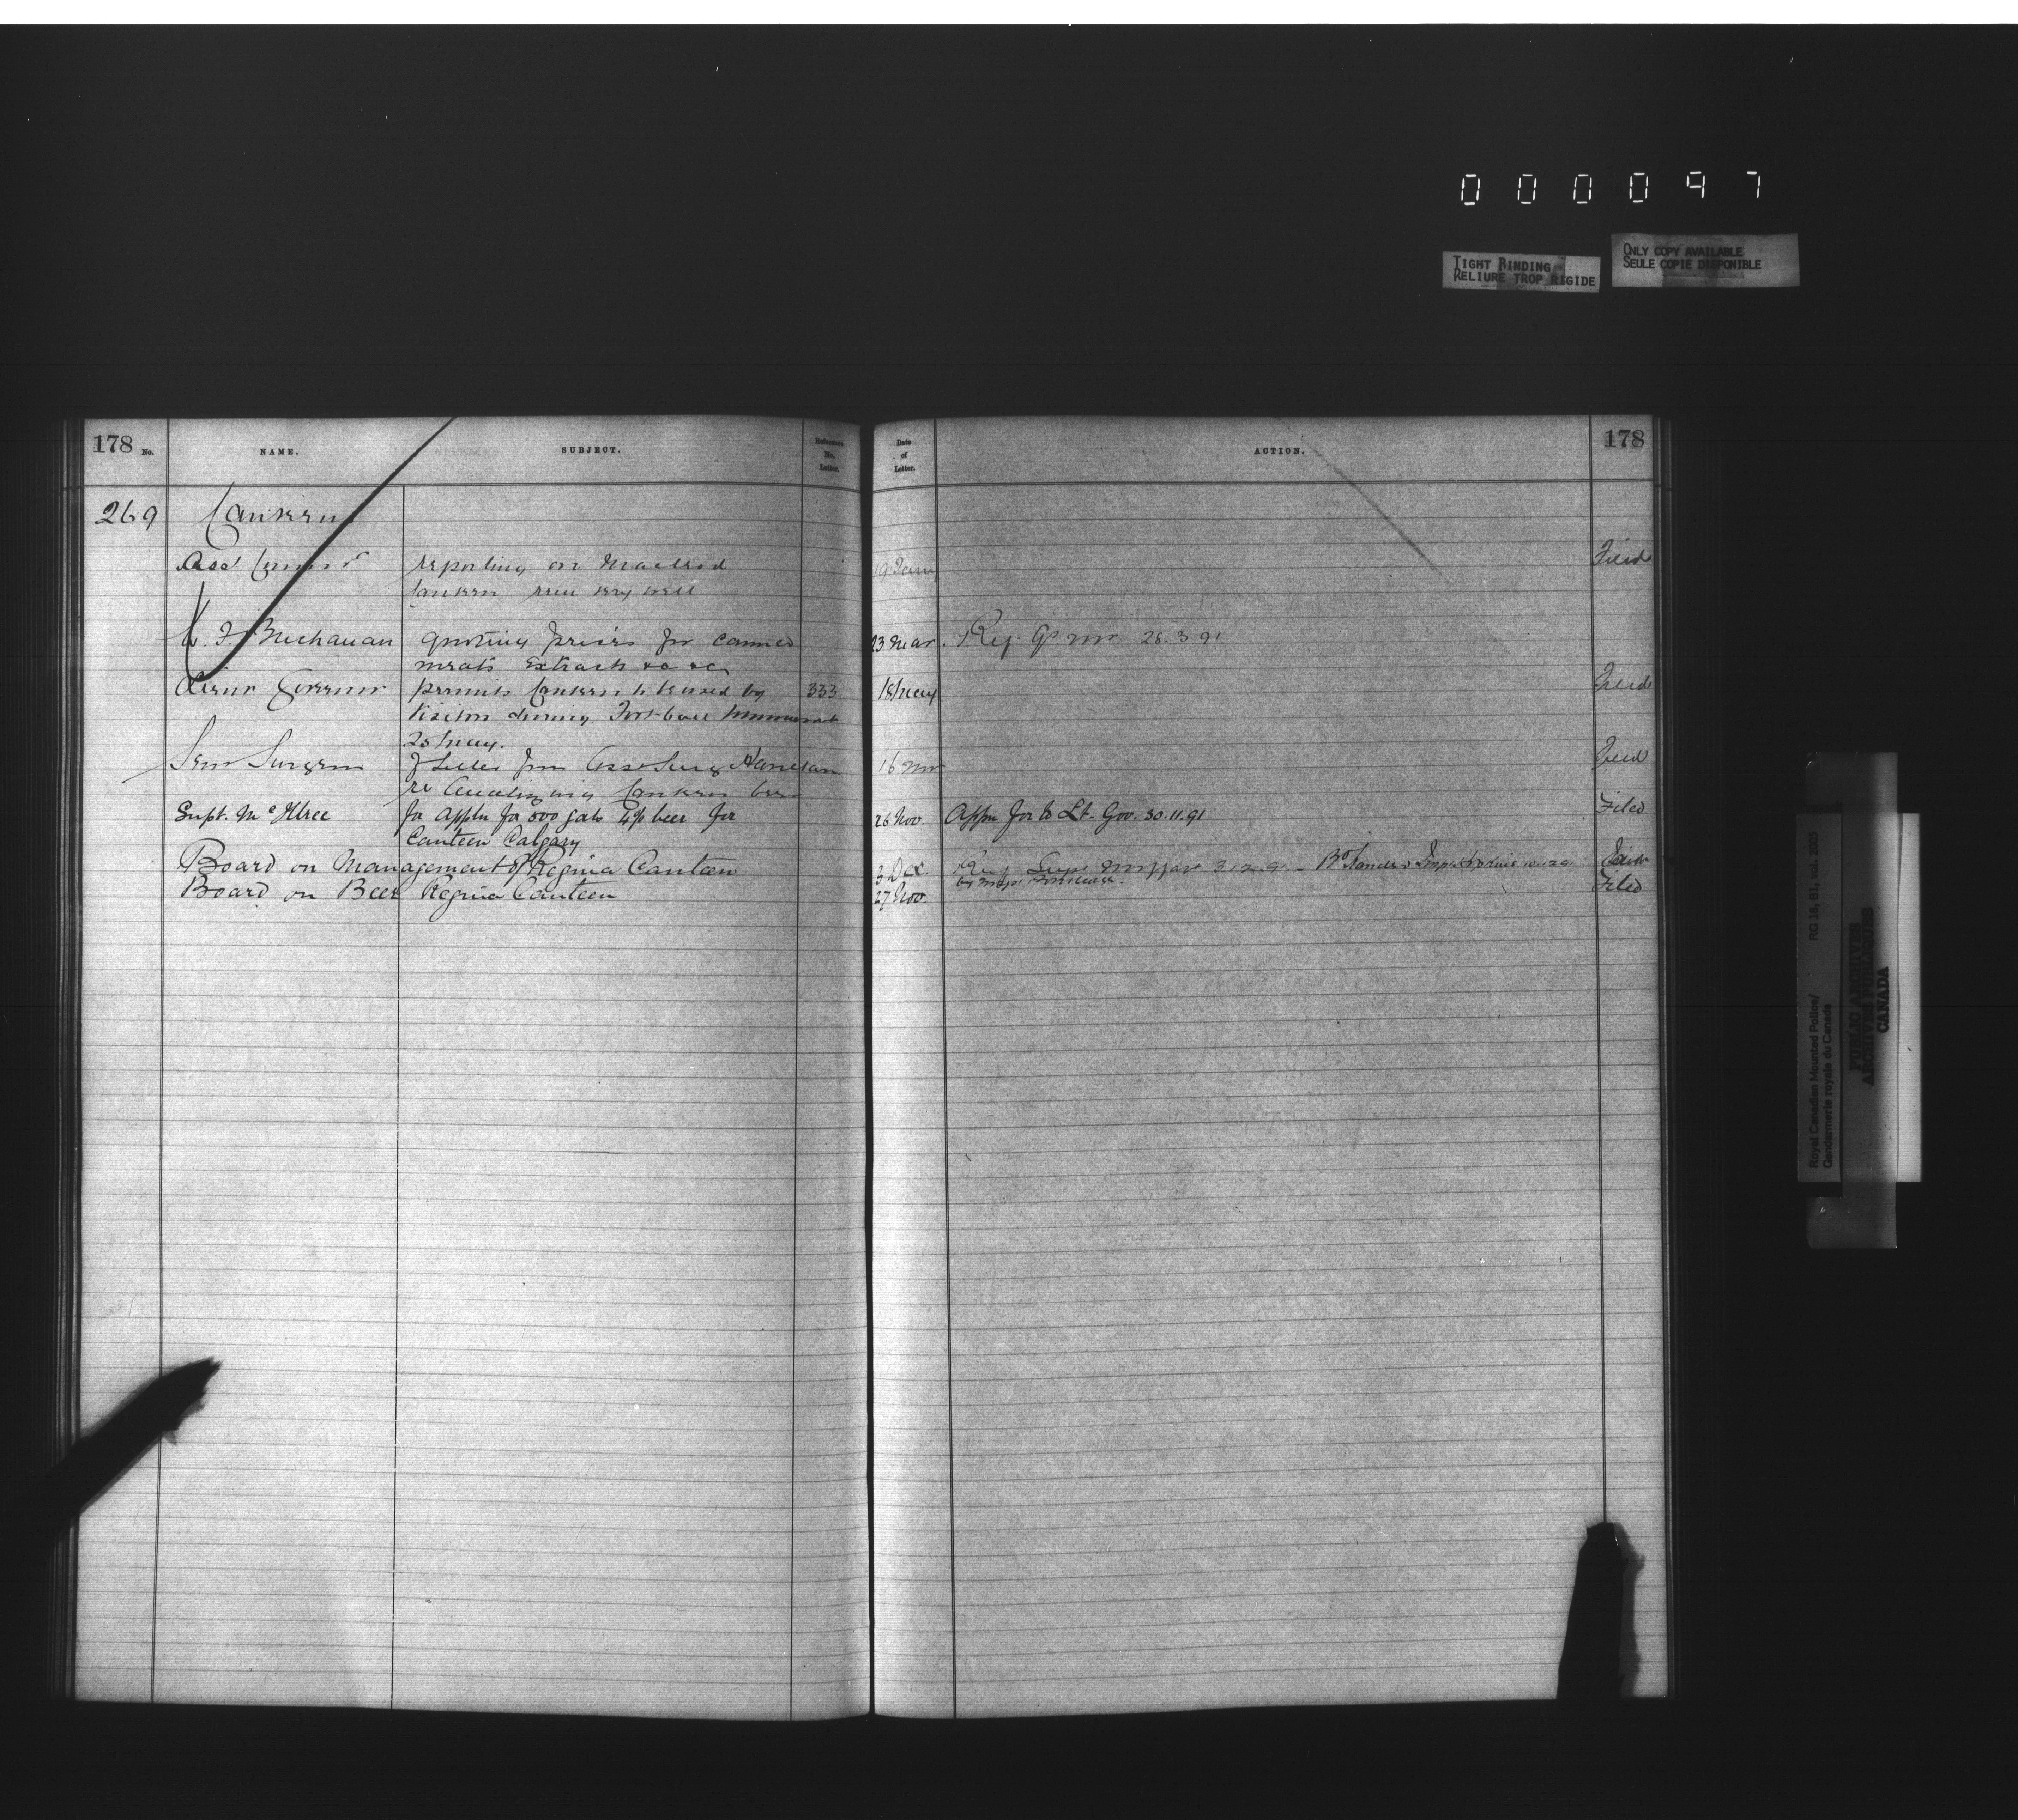 000097
TIGHT BINDING
RELIURE TROP RIGIDE
ONLY COPY AVAILABLE
SEULE COPIE DISPONIBLE
178 No. NAME. SUBJECT. Reference No. Letter. Date of Letter. ACTION. 178
269 Canteens
Asst Commr reporting on Macleod 19 Jany Filed
Canteen very well
F. Buchanan quoting prices for canned 23 Mar. Rep. 28.3.91
meats Extracts &c &c
Lieut Governor permits Canteen to be used by 333 18 May Filed
Visitors during Foot-ball Tournament
25 May.
Senr Surgeon f letter from Asst Surg Haultain 16 Nov Filed
re Canteen beer
Supt. McIllree for appln for 500 gals 4% beer for 26 Nov. Appn for to Lt. Gov. 30.11.91 Filed
Canteen Calgary
Board on Management of Regina Canteen 3 Dec.
Board on Beer Regina Canteen 27 Nov. Filed
Royal Canadian Mounted Police/
Gendarmerie royale du Canada
RG 18, B1, vol.
PUBLIC ARCHIVES
ARCHIVES PUBLIQUES
CANADA